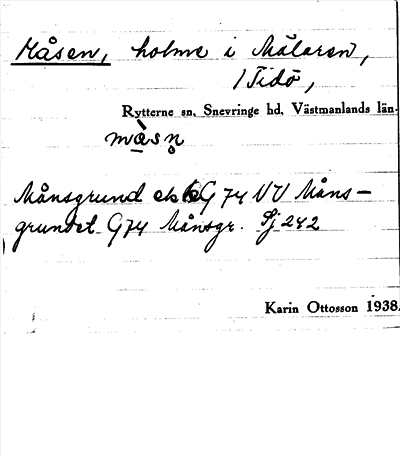 Måsen, holme i Mälaren,
/Tidö,
Rytterne sn. Snevringe hd, Västmanlands län.
måsn̥
Månsgrund ekbl G 74 NV Måns-
grundet. G74 Månsgr. Sj 242
Karin Ottosson 1938.